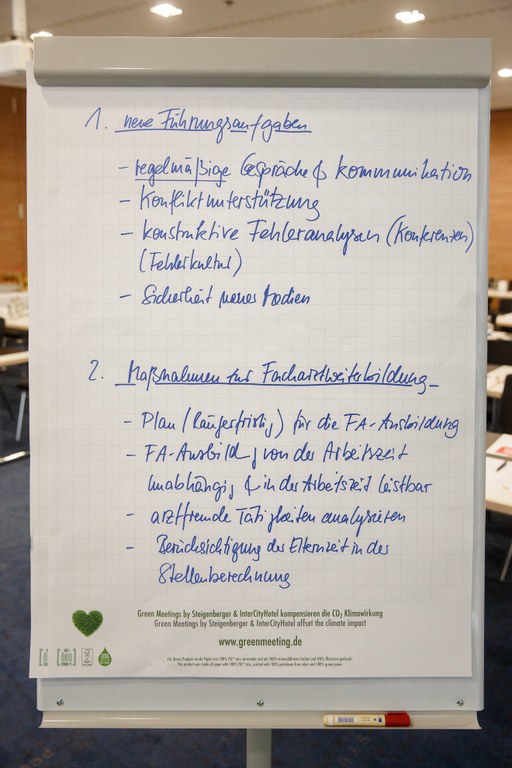 1. neue Führungsaufgaben
- regelmäßige Gespräche & Kommunikation
- Konfliktunterstützung
- konstruktive Fehleranalysen (Konferenzen)
(Fehlerkultur)
- Sicherheit neuer Medien
2. Maßnahmen zur Facharztweiterbildung
- Plan (längerfristig) für die FA-Ausbildung
- FA-Ausbild., von der Arbeitszeit
unabhängig & in der Arbeitszeit leistbar
- arztfremde Tätigkeiten analysieren
- Berücksichtigung der Elternzeit in der
Stellenberechnung
Green Meetings by Steigenberger & InterCityHotel kompensieren die CO₂ Klimawirkung
Green Meetings by Steigenberger & InterCityHotel offset the climate impact
www.greenmeeting.de